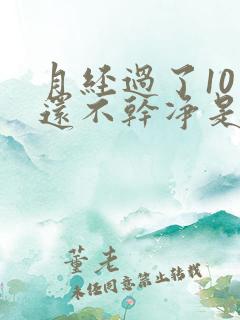 月经過了10
還不幹净是
董老
未经同意禁止转载